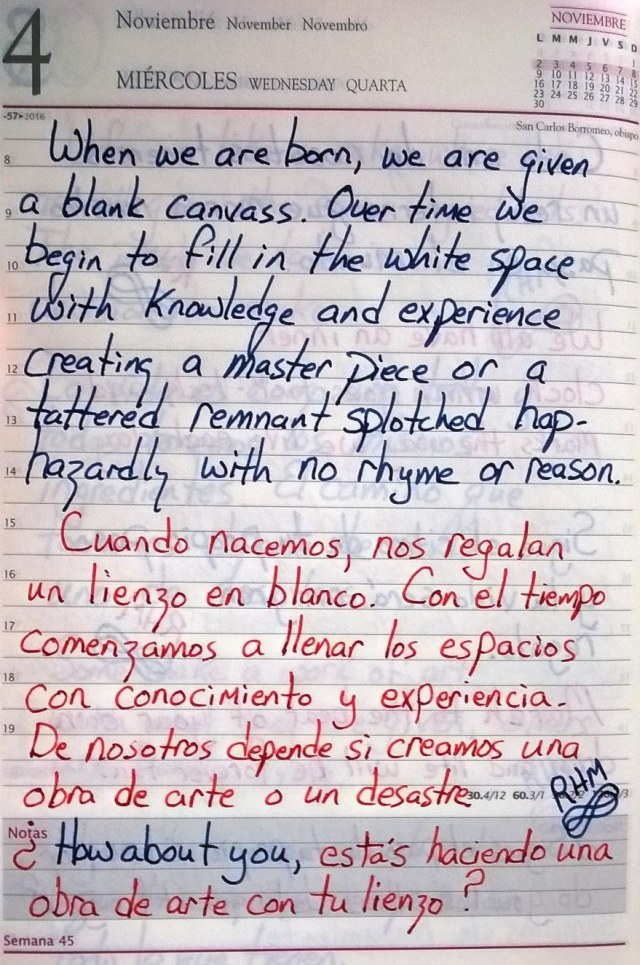 4
Noviembre November Novembro
MIÉRCOLES WEDNESDAY QUARTA
NOVIEMBRE
L M M J V S D
1
2 3 4 5 6 7 8
9 10 11 12 13 14 15
16 17 18 19 20 21 22
23 24 25 26 27 28 29
30
-57>2016
San Carlos Borromeo, obispo
8 When we are born, we are given
9 a blank canvass. Over time we
10 begin to fill in the white space
11 with knowledge and experience
12 creating a master piece or a
13 tattered remnant splotched hap-
14 hazardly with no rhyme or reason.
15 Cuando nacemos, nos regalan
16 un lienzo en blanco. Con el tiempo
17 comenzamos a llenar los espacios
18 con conocimiento y experiencia.
19 De nosotros depende si creamos una
obra de arte o un desastre
30.4/12 60.3/1
RHM
Notas
¿How about you, estás haciendo una
obra de arte con tu lienzo?
Semana 45